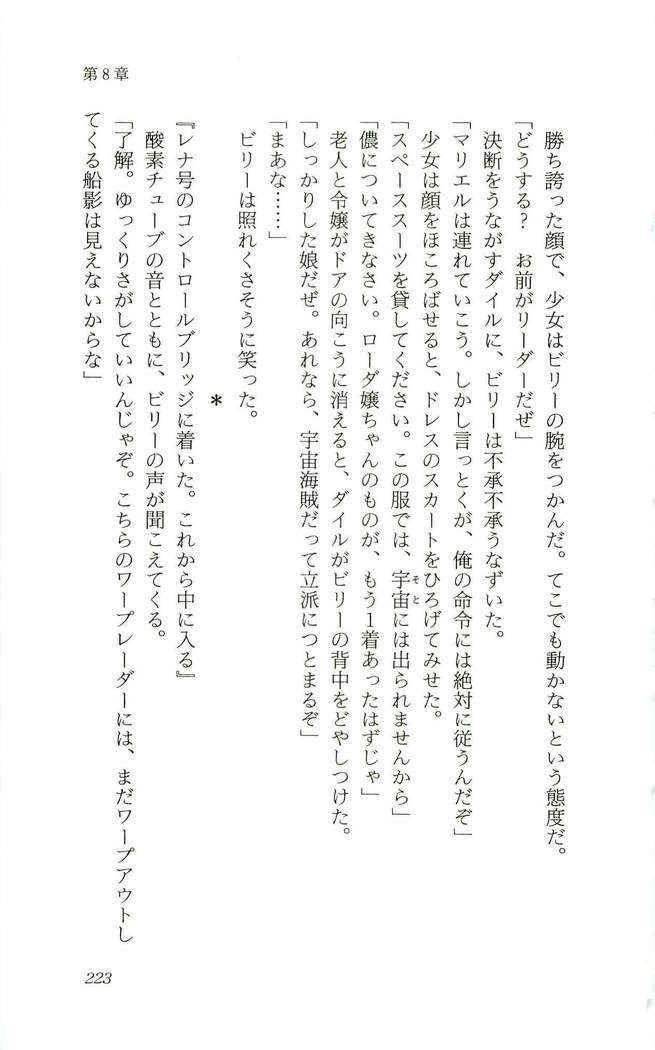 第8章
勝ち誇った顔で、少女はビリーの腕をつかんだ。てこでも動かないという態度だ。
「どうする？　お前がリーダーだぜ」
決断をうながすダイルに、ビリーは不承不承うなずいた。
「マリエルは連れていこう。しかし言っとくが、俺の命令には絶対に従うんだぞ」
少女は顔をほころばせると、ドレスのスカートをひろげてみせた。
「スペーススーツを貸してください。この服では、宇宙には出られませんから」
そと
「儂についてきなさい。ローダ嬢ちゃんのものが、もう1着あったはずじゃ」
老人と令嬢がドアの向こうに消えると、ダイルがビリーの背中をどやしつけた。
「しっかりした娘だぜ。あれなら、宇宙海賊だって立派につとまるぞ」
「まあな……」
ビリーは照れくさそうに笑った。
＊
『レナ号のコントロールブリッジに着いた。これから中に入る』
酸素チューブの音とともに、ビリーの声が聞こえてくる。
「了解。ゆっくりさがしていいんじゃぞ。こちらのワープレーダーには、まだワープアウトし
てくる船影は見えないからな」
223